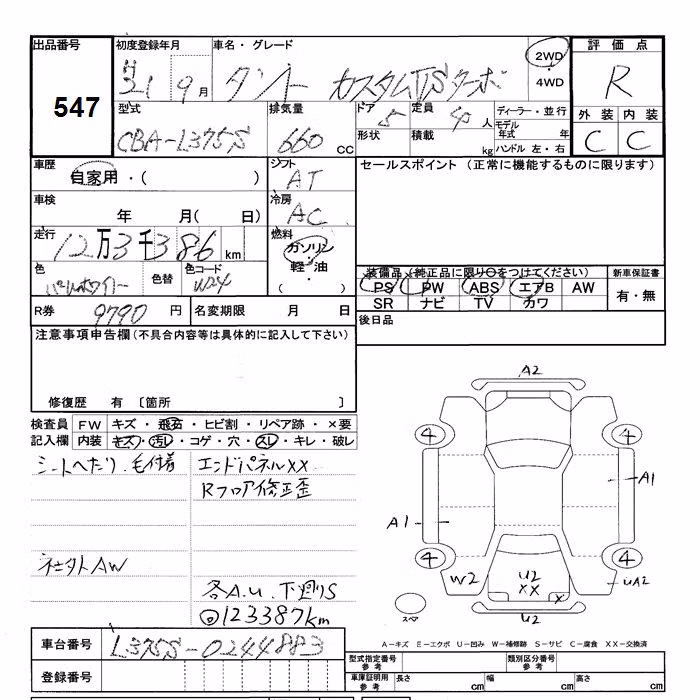 出品番号 初度登録年月 車名・グレード 評価点
547
H21 9月 タント カスタムTSターボ 2WD・4WD R
型式 排気量 ドア 定員 ディーラー・並行 外装 内装
CBA-L375S 660 CC 5 4人 モデル年式 年 C C
形状 積載 kg ハンドル 左・右
車歴 シフト セールスポイント (正常に機能するものに限ります)
自家用・( ) AT
車検 冷房
年 月( 日) AC
走行 燃料
12万3千386km ガソリン・軽・油 ( )
色 色替 色コード
パールホワイト W24
装備品 (純正品に限り○をつけてください) 新車保証書
PS PW ABS エアB AW 有・無
SR ナビ TV カワ
R券 9790円 名変期限 月 日 後日品
注意事項申告欄 (不具合内容等は具体的に記入して下さい)
修復歴 有 〔箇所 〕
検査員記入欄 FW キズ・飛石・ヒビ割・リペア跡・×要
内装 キズ・汚レ・コゲ・穴・スレ・キレ・破レ
シートヘたり、毛付着 エンドパネルXX
Rフロア修正歪
社外AW
各A.U.下廻りS
123387km
A2
4 4
A1 A1
4 4
W2 U2 XX X UA2
スペア U2
A-キズ E-エクボ U-凹み W-補修跡 S-サビ C-腐食 XX-交換済
車台番号 L375S-0244883
登録番号
型式指定番号 参考 類別区分番号 参考
車庫証明用 参考 長さ cm 幅 cm 高さ cm